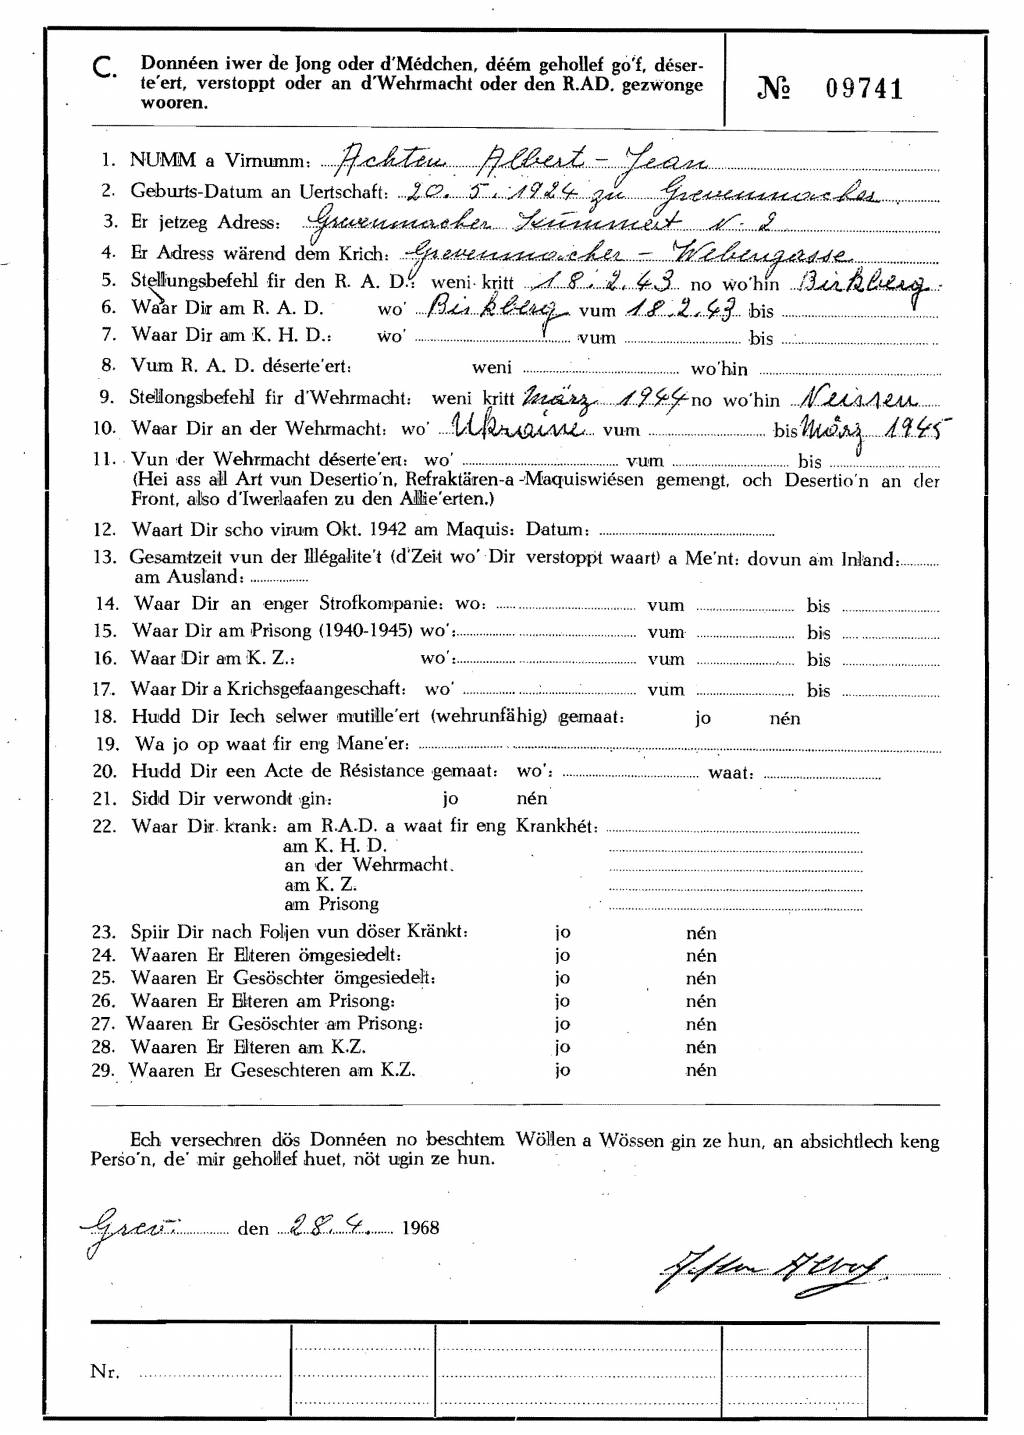 C. Donnéen iwer de Jong oder d'Médchen, déém gehollef go'f, déser-
te'ert, verstoppt oder an d'Wehrmacht oder den R.AD. gezwonge
wooren.
№ 09741
1. NUMM a Virnumm: Achten Albert - Jean
2. Geburts-Datum an Uertschaft: 20. 5. 1924 zu Grevenmacher
3. Er jetzeg Adress: Grevenmacher Kummert N. 2
4. Er Adress wärend dem Krich: Grevenmacher - Webergasse
5. Stellungsbefehl fir den R. A. D.: weni kritt 18. 2. 43 no wo'hin Birkberg
6. Waar Dir am R. A. D. wo' Birkberg vum 18.2.43 bis
7. Waar Dir am K. H. D.: wo' vum bis
8. Vum R. A. D. déserte'ert: weni wo'hin
9. Stellongsbefehl fir d'Wehrmacht: weni kritt März 1944 no wo'hin Neissen
10. Waar Dir an der Wehrmacht: wo' Ukraine vum bis März 1945
11. Vun der Wehrmacht déserte'ert: wo' vum bis
(Hei ass all Art vun Desertio'n, Refraktären-a -Maquiswiésen gemengt, och Desertio'n an der
Front, also d'Iwerlaafen zu den Allie'erten.)
12. Waart Dir scho virum Okt. 1942 am Maquis: Datum:
13. Gesamtzeit vun der Illégalite't (d'Zeit wo' Dir verstoppt waart) a Me'nt: dovun am Inland:
am Ausland:
14. Waar Dir an enger Strofkompanie: wo: vum bis
15. Waar Dir am Prisong (1940-1945) wo': vum bis
16. Waar Dir am K. Z.: wo': vum bis
17. Waar Dir a Krichsgefaangeschaft: wo' vum bis
18. Hudd Dir Iech selwer mutille'ert (wehrunfähig) gemaat: jo nén
19. Wa jo op waat fir eng Mane'er:
20. Hudd Dir een Acte de Résistance gemaat: wo': waat:
21. Sidd Dir verwondt gin: jo nén
22. Waar Dir krank: am R.A.D. a waat fir eng Krankhét:
am K. H. D.
an der Wehrmacht.
am K. Z.
am Prisong
23. Spiir Dir nach Foljen vun döser Kränkt: jo nén
24. Waaren Er Elteren ömgesiedelt: jo nén
25. Waaren Er Gesöschter ömgesiedelt: jo nén
26. Waaren Er Elteren am Prisong: jo nén
27. Waaren Er Gesöschter am Prisong: jo nén
28. Waaren Er Elteren am K.Z. jo nén
29. Waaren Er Geseschteren am K.Z. jo nén
Ech versechren dös Donnéen no beschtem Wöllen a Wössen gin ze hun, an absichtlech keng
Perso'n, de' mir gehollef huet, nöt ugin ze hun.
Grev. den 28. 4. 1968
Nr.